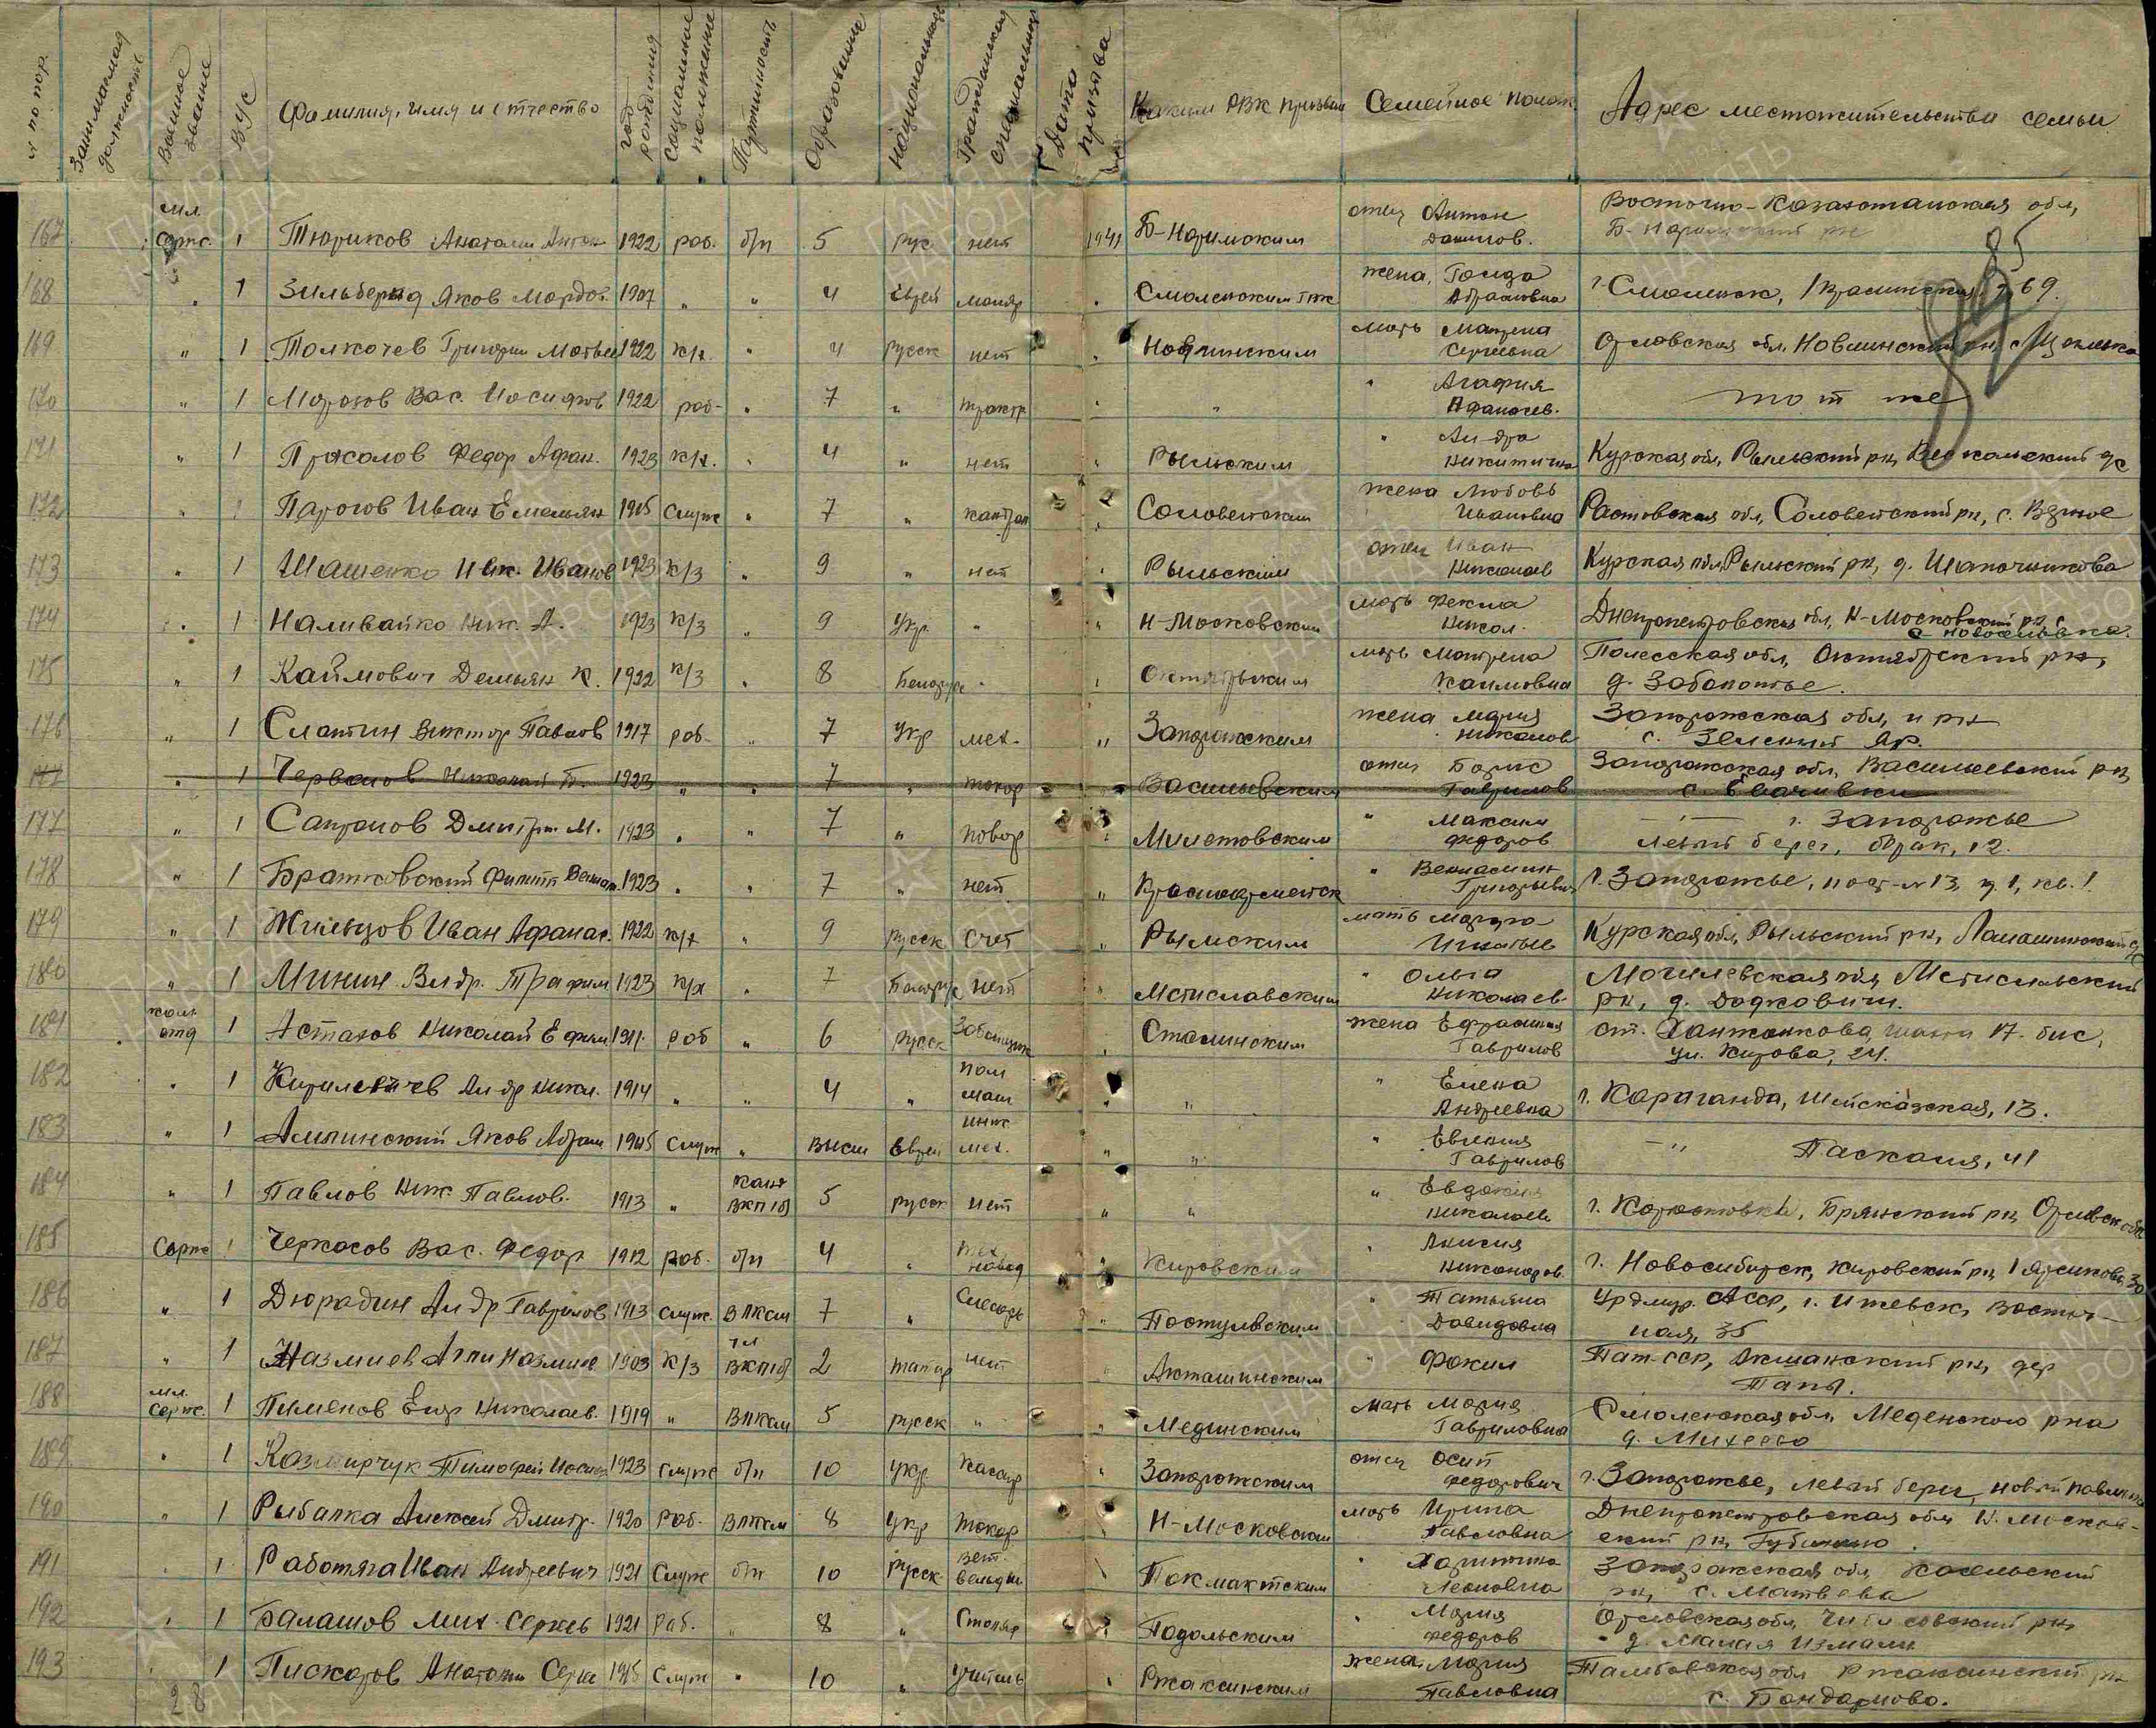 № по пор. Занимаемая должность Военное звание ВУС Фамилия, имя и отчество год рождения Социальное положение Партийность Образование Национальность Гражданская специальность Дата призыва Каким РВК призван Семейное полож. Адрес местожительства семьи
167 мл. серж. 1 Тюриков Анатоли Антон 1922 раб. б/п 5 рус нет 1941 Б-Нарымским отец Антон Данилов. Восточно-Казахстанская обл,
Б-Нарымский рн
168 " 1 Зильберид Яков Мордов. 1907 " " 4 еврей маляр " Смоленским жена, Абрамовна г. Смоленск, 69.
169 " 1 Толкачев Григории Матвее 1922 к/х. " 4 русск нет " Новлинским мать Матрена Сергеевна Орловская обл. Новлинский рн,
170 " 1 Морозов Вас. Иосифов 1922 раб- " 7 " тракт. " " " Агафия Афанасев. тот же
171 " 1 Прасолов Федор Афан. 1923 к/х. " 4 " нет " Рыльским " Ал-дра Никитична Курская обл, Рыльский рн,
172 " 1 Парогов Иван Емельян 1905 Служ " 7 " " Соловетским жена Любовь Ивановна Ростовская обл, Соловетский рн, с.
173 " 1 Шашенко Ник. Иванов 1923 к/з " 9 " нет " Рыльским отец Иван Николаев Курская обл Рыльский рн, д. Шапочникова
174 " 1 Наливайко Ник. А. 1923 к/з " 9 Укр. " " Н-Московским мать Фекла Никол. Днепропетровская обл, Н-Московский рн, с
с. Новоселовка.
175 " 1 Каймович Демьян К. 1922 к/з " 8 Белорус " " Октябрьским мать Матрена Каимовна Полесская обл, Октябрьский рн,
д. Заболотье.
176 " 1 Слатин Виктор Павлов 1917 раб- " 7 Укр мех. " Запорожским жена Мария Николаев Запорожская обл, и рн
с. Зеленый Яр.
177 " 1 Червонов Николай Б. 1923 " " 7 " токар " Васильевским отец Борис Гаврилов Запорожская обл, Васильевский рн,
с.
177 " 1 Сапронов Дмитри М. 1923 " " 7 " повор " " Максим Федоров г. Запорожье
левый берег, барак, 12.
178 " 1 Братковский Филипп Вениам. 1923 " " 7 " нет " Красноарметск " Вениамин Григорьевич г. Запорожье, пос-№13, д. 1, кв. 1.
179 " 1 Жильцов Иван Афанас. 1922 к/х " 9 русск счет " Рыльским мать Марфа Игнатьев Курская обл, Рыльский рн,
180 " 1 Минин Вл-др. Трафим 1923 к/х " 7 Белорус нет " Мстиславским " Ольга Николаев- Могилевская обл, Мстиславский
рн, д. Додковичи.
181 ком отд 1 Астахов Николай Ефим 1911. раб " 6 русск Забойщик " Сталинским жена Ефросиния Гаврилов ст. Ханженкова, шахта 17-бис,
ул. Кирова, 24.
182 " 1 Кирилевичев Ал-др Никл. 1914 " " 4 " пом маш " " " Елена Андреевна г. Караганда, 13.
183 " 1 Ампинский Яков Абрам 1905 Служ " высш Еврей инж мех. " " " Евгения Гаврилов " 41
184 " 1 Павлов Ник. Павлов. 1913 " канд ВКП(б) 5 русск нет " " " Евдокия Николаев г. Брянский рн, Орловск обл
185 Серж 1 Черкасов Вас. Федор 1912 раб. б/п 4 " " Кировским " Никаноров. г. Новосибирск, Кировский рн,
186 " 1 Дюрадин Ал-др Гаврилов 1913 служ. ВЛКСМ 7 " Слесарь " Постулвским " Татьяна Давидовна Удмур. АССР, г. Ижевск, Восточ-
ная, 35
187 " 1 Назмиев Агли Назмиев 1903 к/з чл ВКП(б) 2 татар нет " Акташинским " Тат-ССР, рн, дер
188 мл. серж. 1 Пименов Егор Николаев. 1919 " ВЛКСМ 5 русск " " Медынским мать Мария Гавриловна Смоленская обл, Меденского рна
д. Михеево
189 " 1 Казмирчук Тимофей Иосиф 1923 служ б/п 10 укр. кассир " Запорожским отец Осип Федорович г. Запорожье, левый берег, новый
190 " 1 Рыбалка Алексей Дмитр. 1920 Раб. ВЛКСМ 8 Укр токар " Н-Московским мать Ирина Павловна Днепропетровская обл Н. Москов-
ский рн,
191 " 1 Работяга Иван Андреевич 1921 Служ б/п 10 Русск вет. фельдш. " Токмакским " Харитина Леоновна Запорожская обл,
рн, с. Матвеева
192 " 1 Балашов Мих. Сергеев 1921 раб. " 8 " Столяр " Подольским " Мария Федоров Орловская обл, рн,
д. Малая
193 1 Пискаров Анатоли Серге 1915 Служ " 10 " учитель " Ржаксинским жена Мария Павловна Тамбовская обл Ржаксинский рн
с.
28